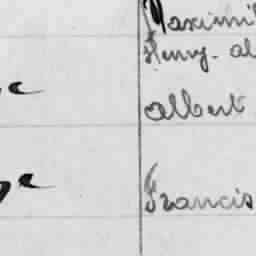 Maximi
Henry. al
albert
Francis